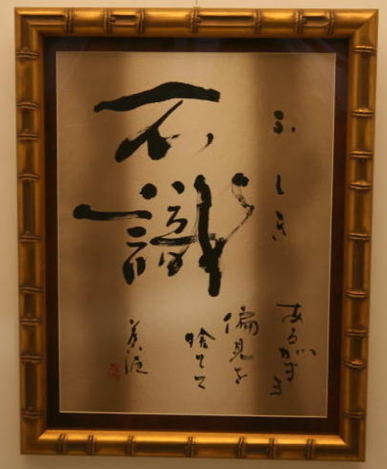 不識
ふしき
あるがまま
偏見を
捨てて